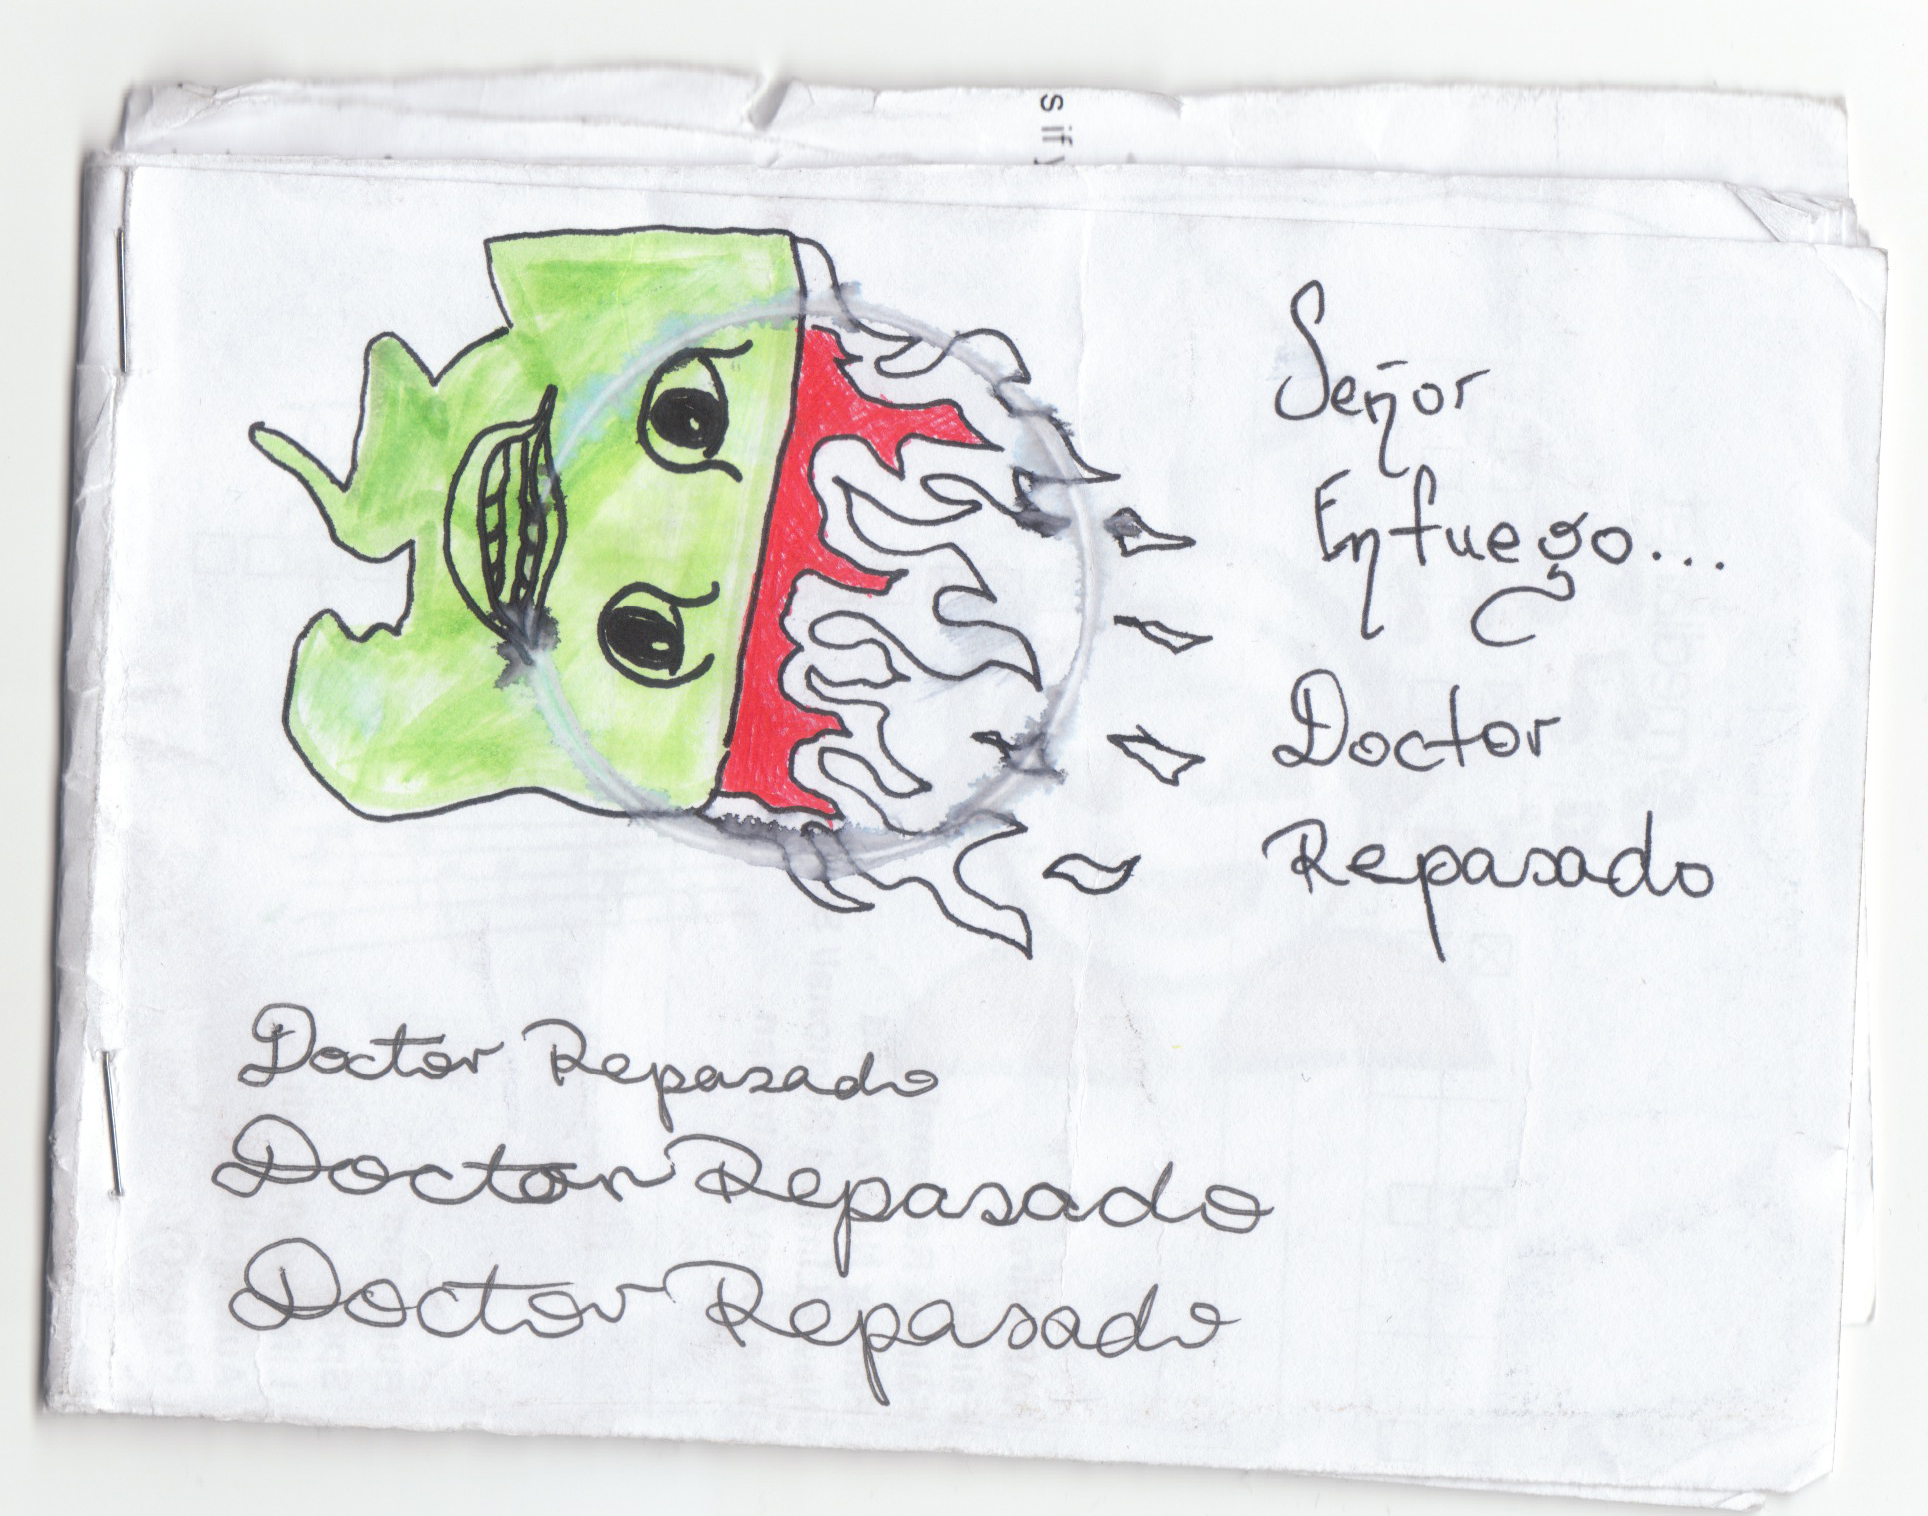 s if y
Señor
Enfuego...
Doctor
Repasado
Doctor Repasado
Doctor Repasado
Doctor Repasado